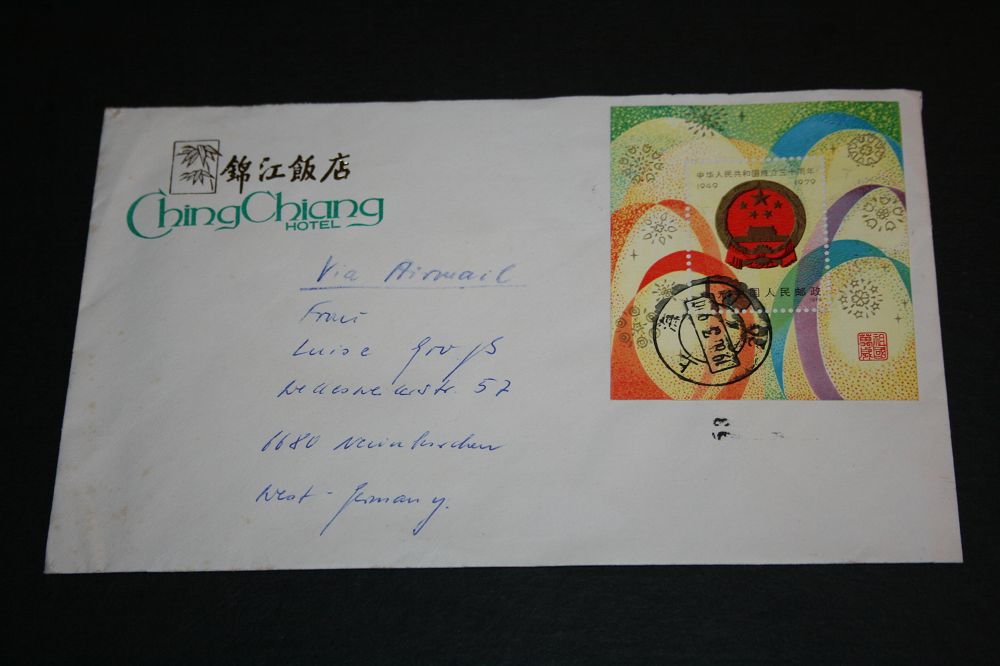 錦江飯店
Ching Chiang
HOTEL
中华人民共和国成立三十周年
1949 1979
国人民邮政
祖國
萬歲
上海
Via Airmail
Frau
Luise
57
6680 Neunkirchen
West-Germany.